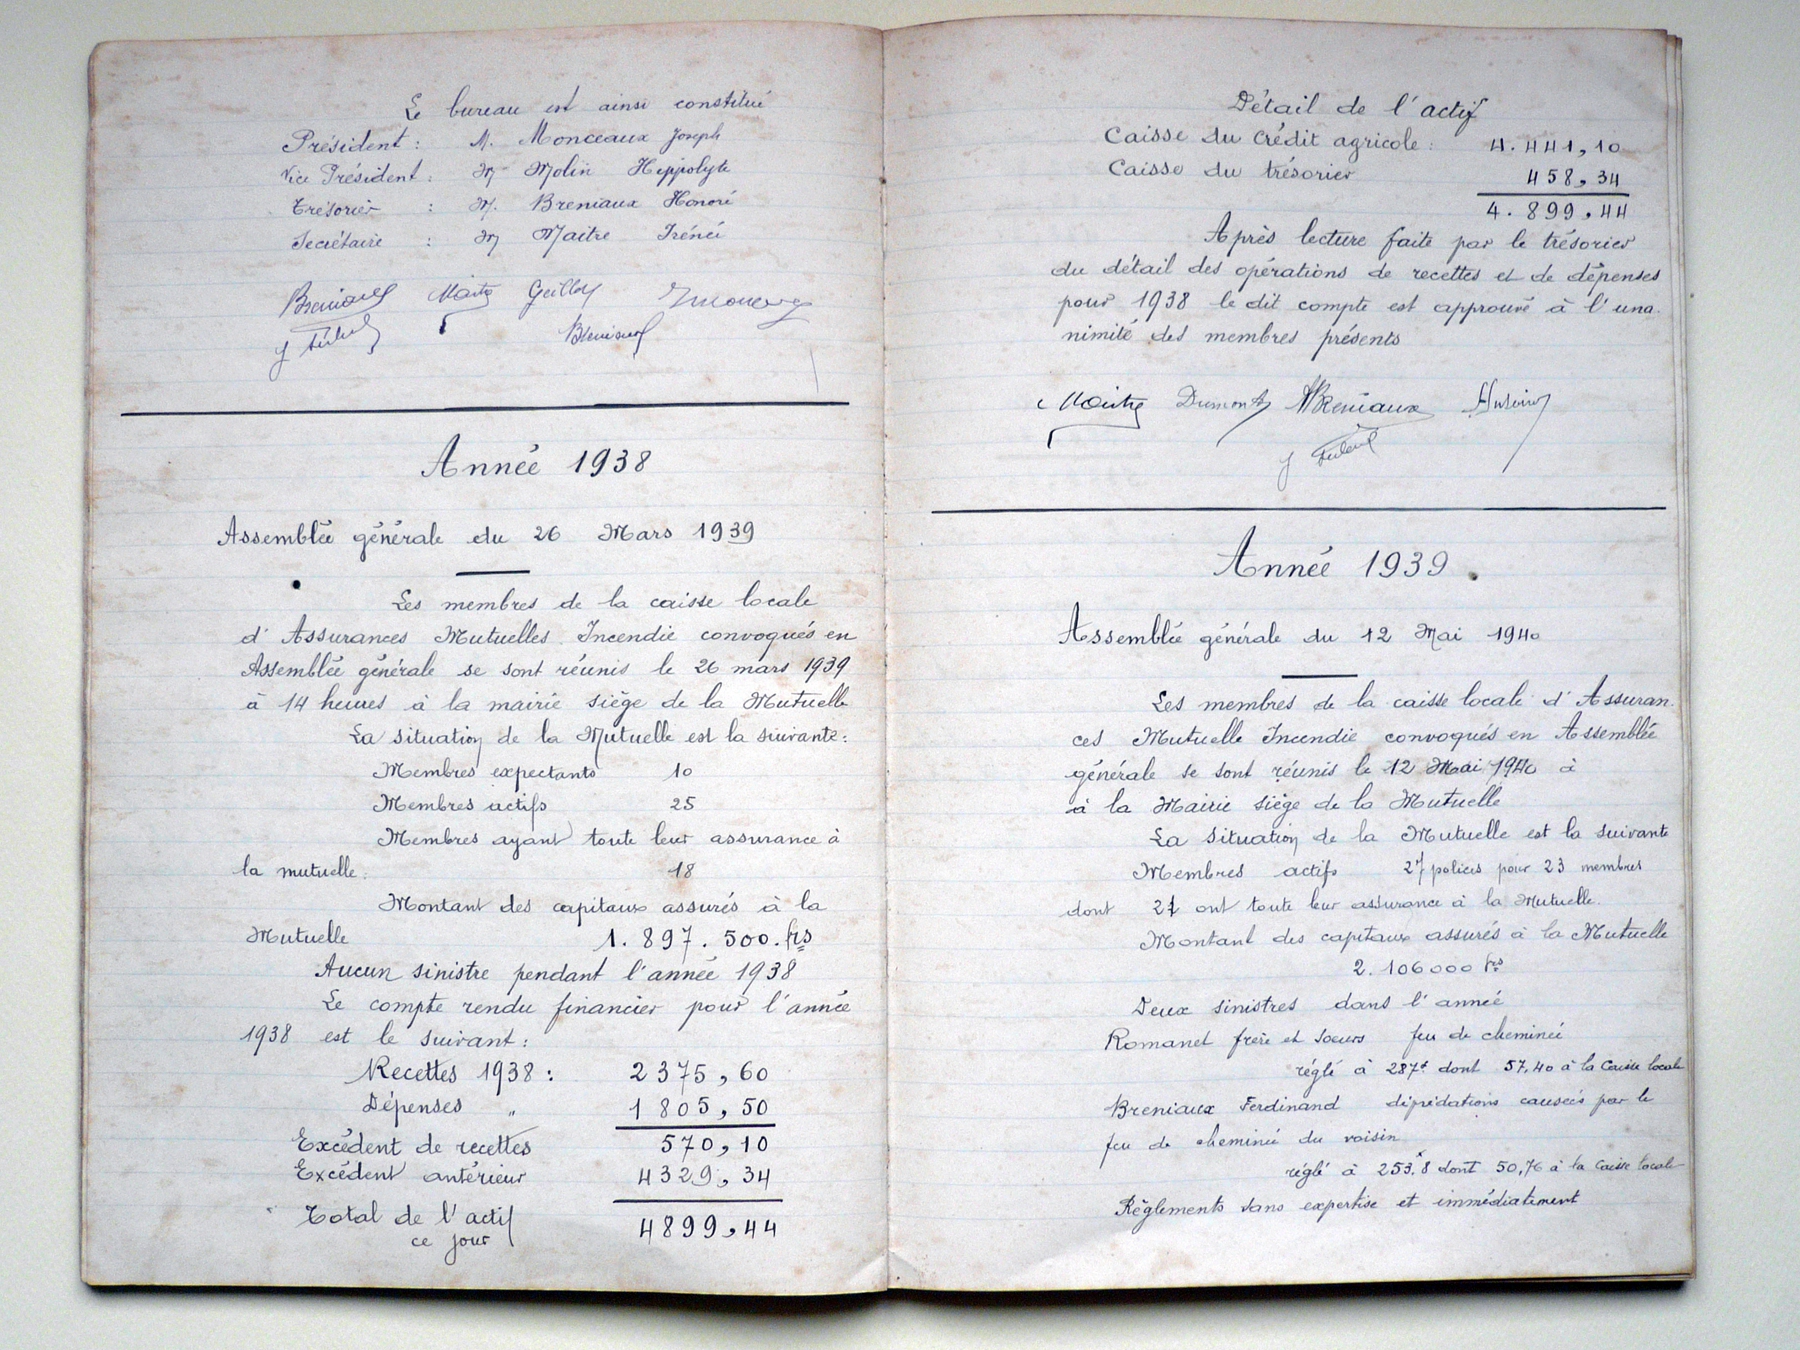 Le bureau est ainsi constitué
Président : M. Monceaux Joseph
Vice Président : M Molin Hippolyte
Trésorier : M. Breniaux Honoré
Secrétaire : M Maitre Irénée
Breniaux Maitre
Breniaux
Année 1938
Assemblée générale du 26 Mars 1939
Les membres de la caisse locale
d'Assurances Mutuelles Incendie convoqués en
Assemblée générale se sont réunis le 26 mars 1939
à 14 heures à la mairie siège de la Mutuelle
La situation de la Mutuelle est la suivante :
Membres expectants 10
Membres actifs 25
Membres ayant toute leur assurance à
la mutuelle : 18
Montant des capitaux assurés à la
Mutuelle 1.897.500.frs
Aucun sinistre pendant l'année 1938
Le compte rendu financier pour l'année
1938 est le suivant :
Recettes 1938 : 2375,60
Dépenses " 1805,50
Excédent de recettes 570,10
Excédent antérieur 4329,34
Total de l'actif
ce jour 4899,44
Détail de l'actif
Caisse du Crédit agricole : 4.441,10
Caisse du trésorier 458,34
4.899,44
Après lecture faite par le trésorier
du détail des opérations de recettes et de dépenses
pour 1938 le dit compte est approuvé à l'una
nimité des membres présents
Maitre Dumont HBreniaux
Année 1939.
Assemblée générale du 12 Mai 1940
Les membres de la caisse locale d'Assuran
ces Mutuelle Incendie convoqués en Assemblée
générale se sont réunis le 12 Mai 1940 à
à la Mairie siège de la Mutuelle
La situation de la Mutuelle est la suivante
Membres actifs 27 polices pour 23 membres
dont 21 ont toute leur assurance à la Mutuelle.
Montant des capitaux assurés à la Mutuelle
2.106000 frs
Deux sinistres dans l'année
Romanet frère et soeurs feu de cheminée
réglé à 287f dont 57,40 à la Caisse locale
Breniaux Ferdinand déprédations causées par le
feu de cheminée du voisin
réglé à 253,8 dont 50,76 à la Caisse locale
Règlements sans expertise et immédiatement